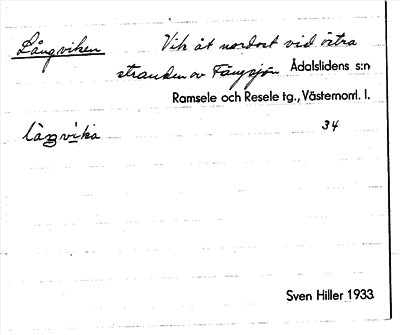 Långviken Vik åt nordost vid östra
stranden av Fängsjön Ådalslidens s:n
Ramsele och Resele tg., Västernorrl. l.
34
Sven Hiller 1933